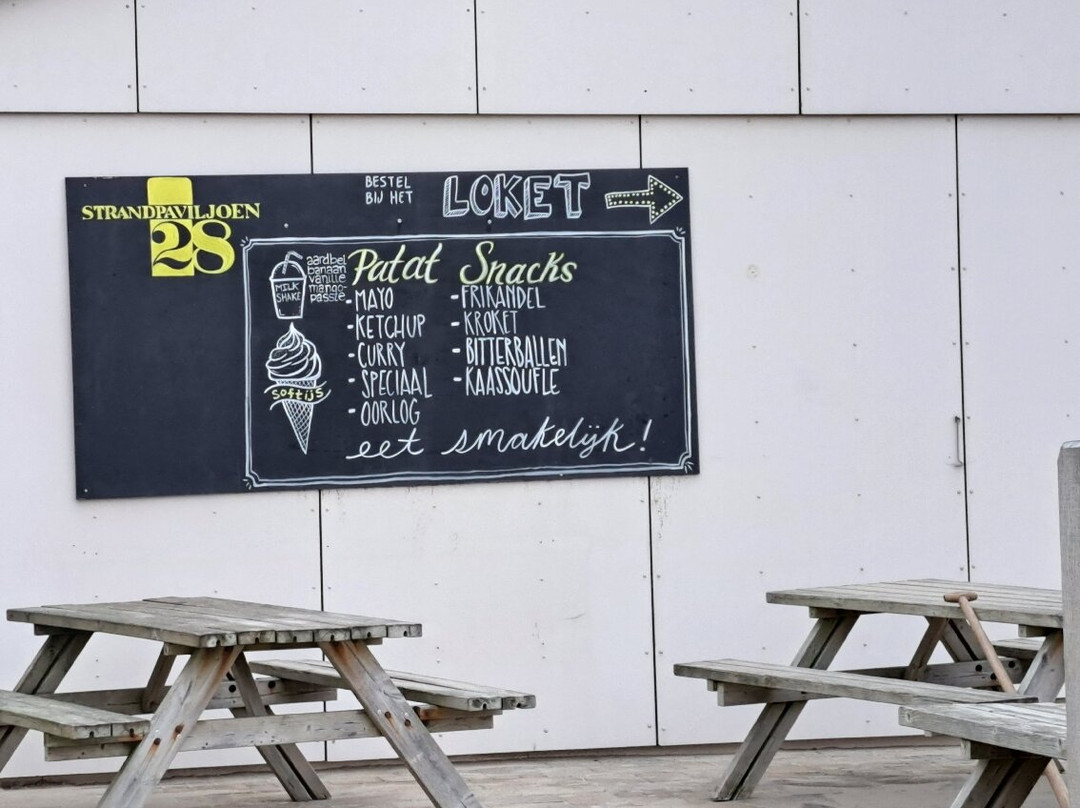 STRANDPAVILJOEN
28
BESTEL
BIJ HET
LOKET
MILK
SHAKE
aardbei
banaan
vanille
mango-
passie
softijs
Patat
-MAYO
-KETCHUP
-CURRY
-SPECIAAL
-OORLOG
Snacks
-FRIKANDEL
-KROKET
-BITTERBALLEN
-KAASSOUFLE
eet smakelijk!